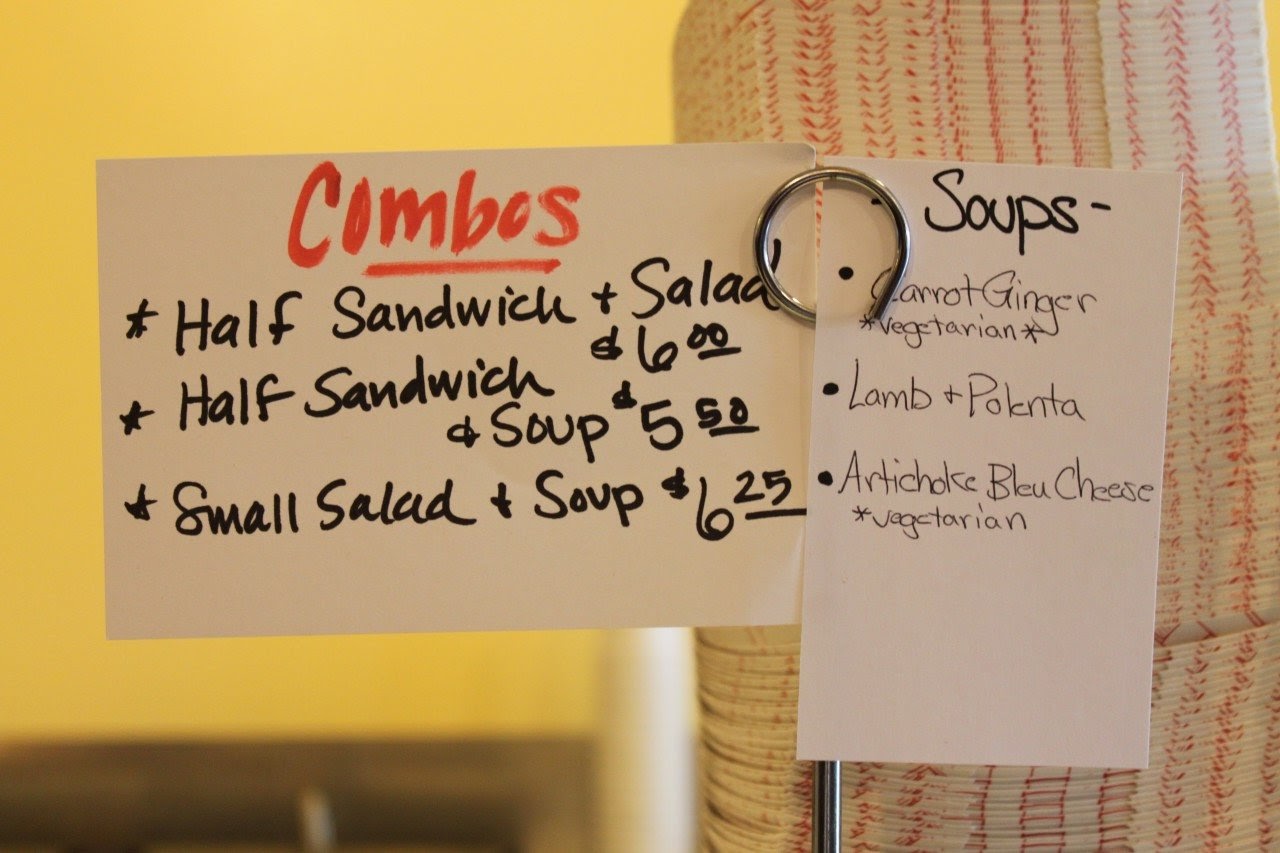 Combos
* Half Sandwich + Salad
$6.00
* Half Sandwich
& Soup $5.50
* Small Salad + Soup $6.25
- Soups -
• Carrot Ginger
*vegetarian*
• Lamb + Polenta
• Artichoke Bleu Cheese
*vegetarian